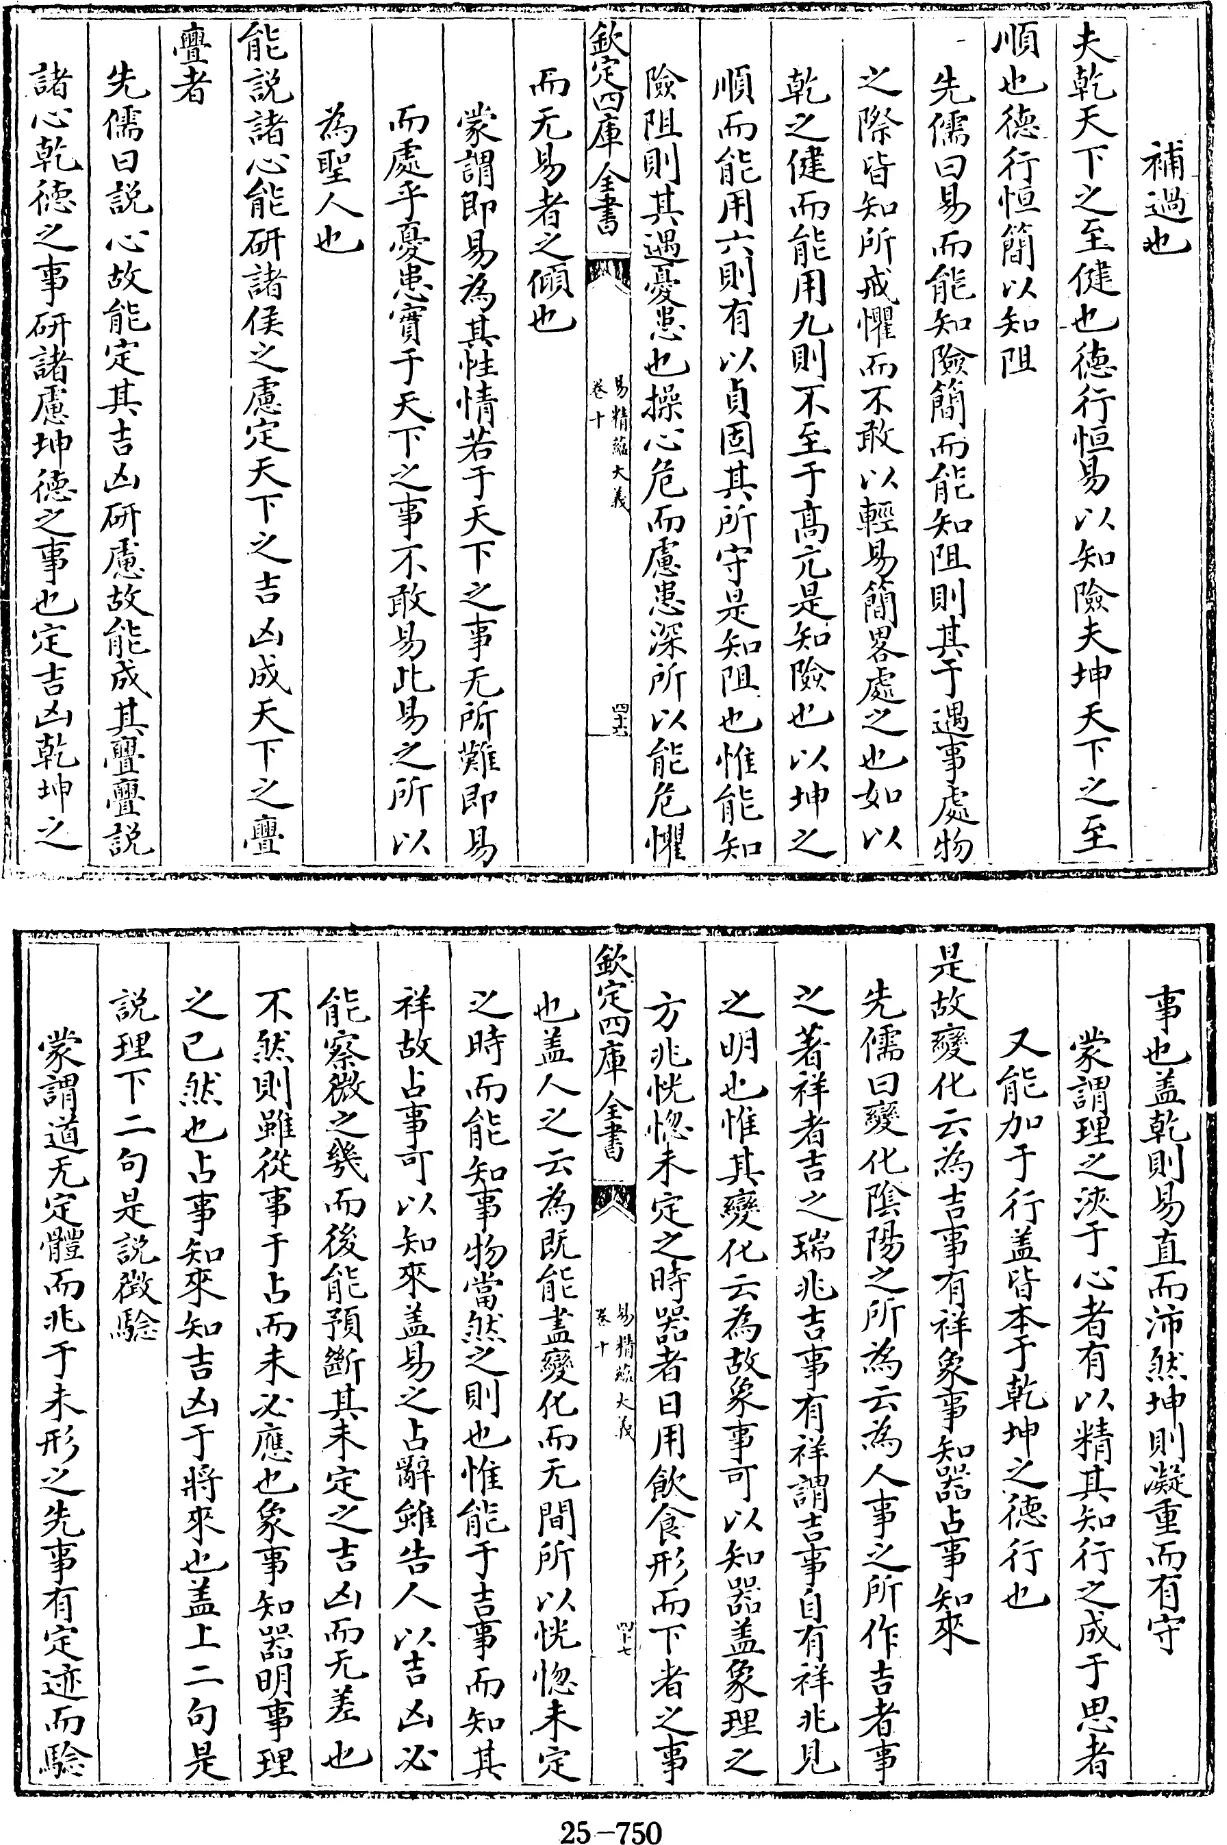 補過也
夫乾天下之至健也德行恒易以知險夫坤天下之至
順也德行恒簡以知阻
先儒曰易而能知險簡而能知阻則其于遇事處物
之際皆知所戒懼而不敢以輕易簡畧處之也如以
乾之健而能用九則不至于髙亢是知險也以坤之
順而能用六則有以貞固其所守是知阻也惟能知
險阻則其遇憂患也操心危而慮患深所以能危懼
欽定四庫全書
易精蘊大義
卷十
四十六
而无易者之傾也
蒙謂即易為其性情若于天下之事无所難即易
而處乎憂患實于天下之事不敢易此易之所以
為聖人也
能説諸心能研諸侯之慮定天下之吉凶成天下之亹
亹者
先儒曰説心故能定其吉凶研慮故能成其亹亹説
諸心乾德之事研諸慮坤德之事也定吉凶乾坤之
事也盖乾則易直而沛然坤則凝重而有守
蒙謂理之浹于心者有以精其知行之成于思者
又能加于行盖皆本于乾坤之德行也
是故變化云為吉事有祥象事知器占事知來
先儒曰變化陰陽之所為云為人事之所作吉者事
之著祥者吉之瑞兆吉事有祥謂吉事自有祥兆見
之明也惟其變化云為故象事可以知器盖象理之
方兆恍惚未定之時器者日用飲食形而下者之事
欽定四庫全書
易精蘊大義
卷十
四十七
也盖人之云為既能盡變化而无間所以恍惚未定
之時而能知事物當然之則也惟能于吉事而知其
祥故占事可以知來盖易之占辭雖告人以吉凶必
能察微之幾而後能預斷其未定之吉凶而无差也
不然則雖從事于占而未必應也象事知器明事理
之已然也占事知來知吉凶于將來也盖上二句是
説理下二句是説徴驗
蒙謂道无定體而兆于未形之先事有定迹而驗
25-750